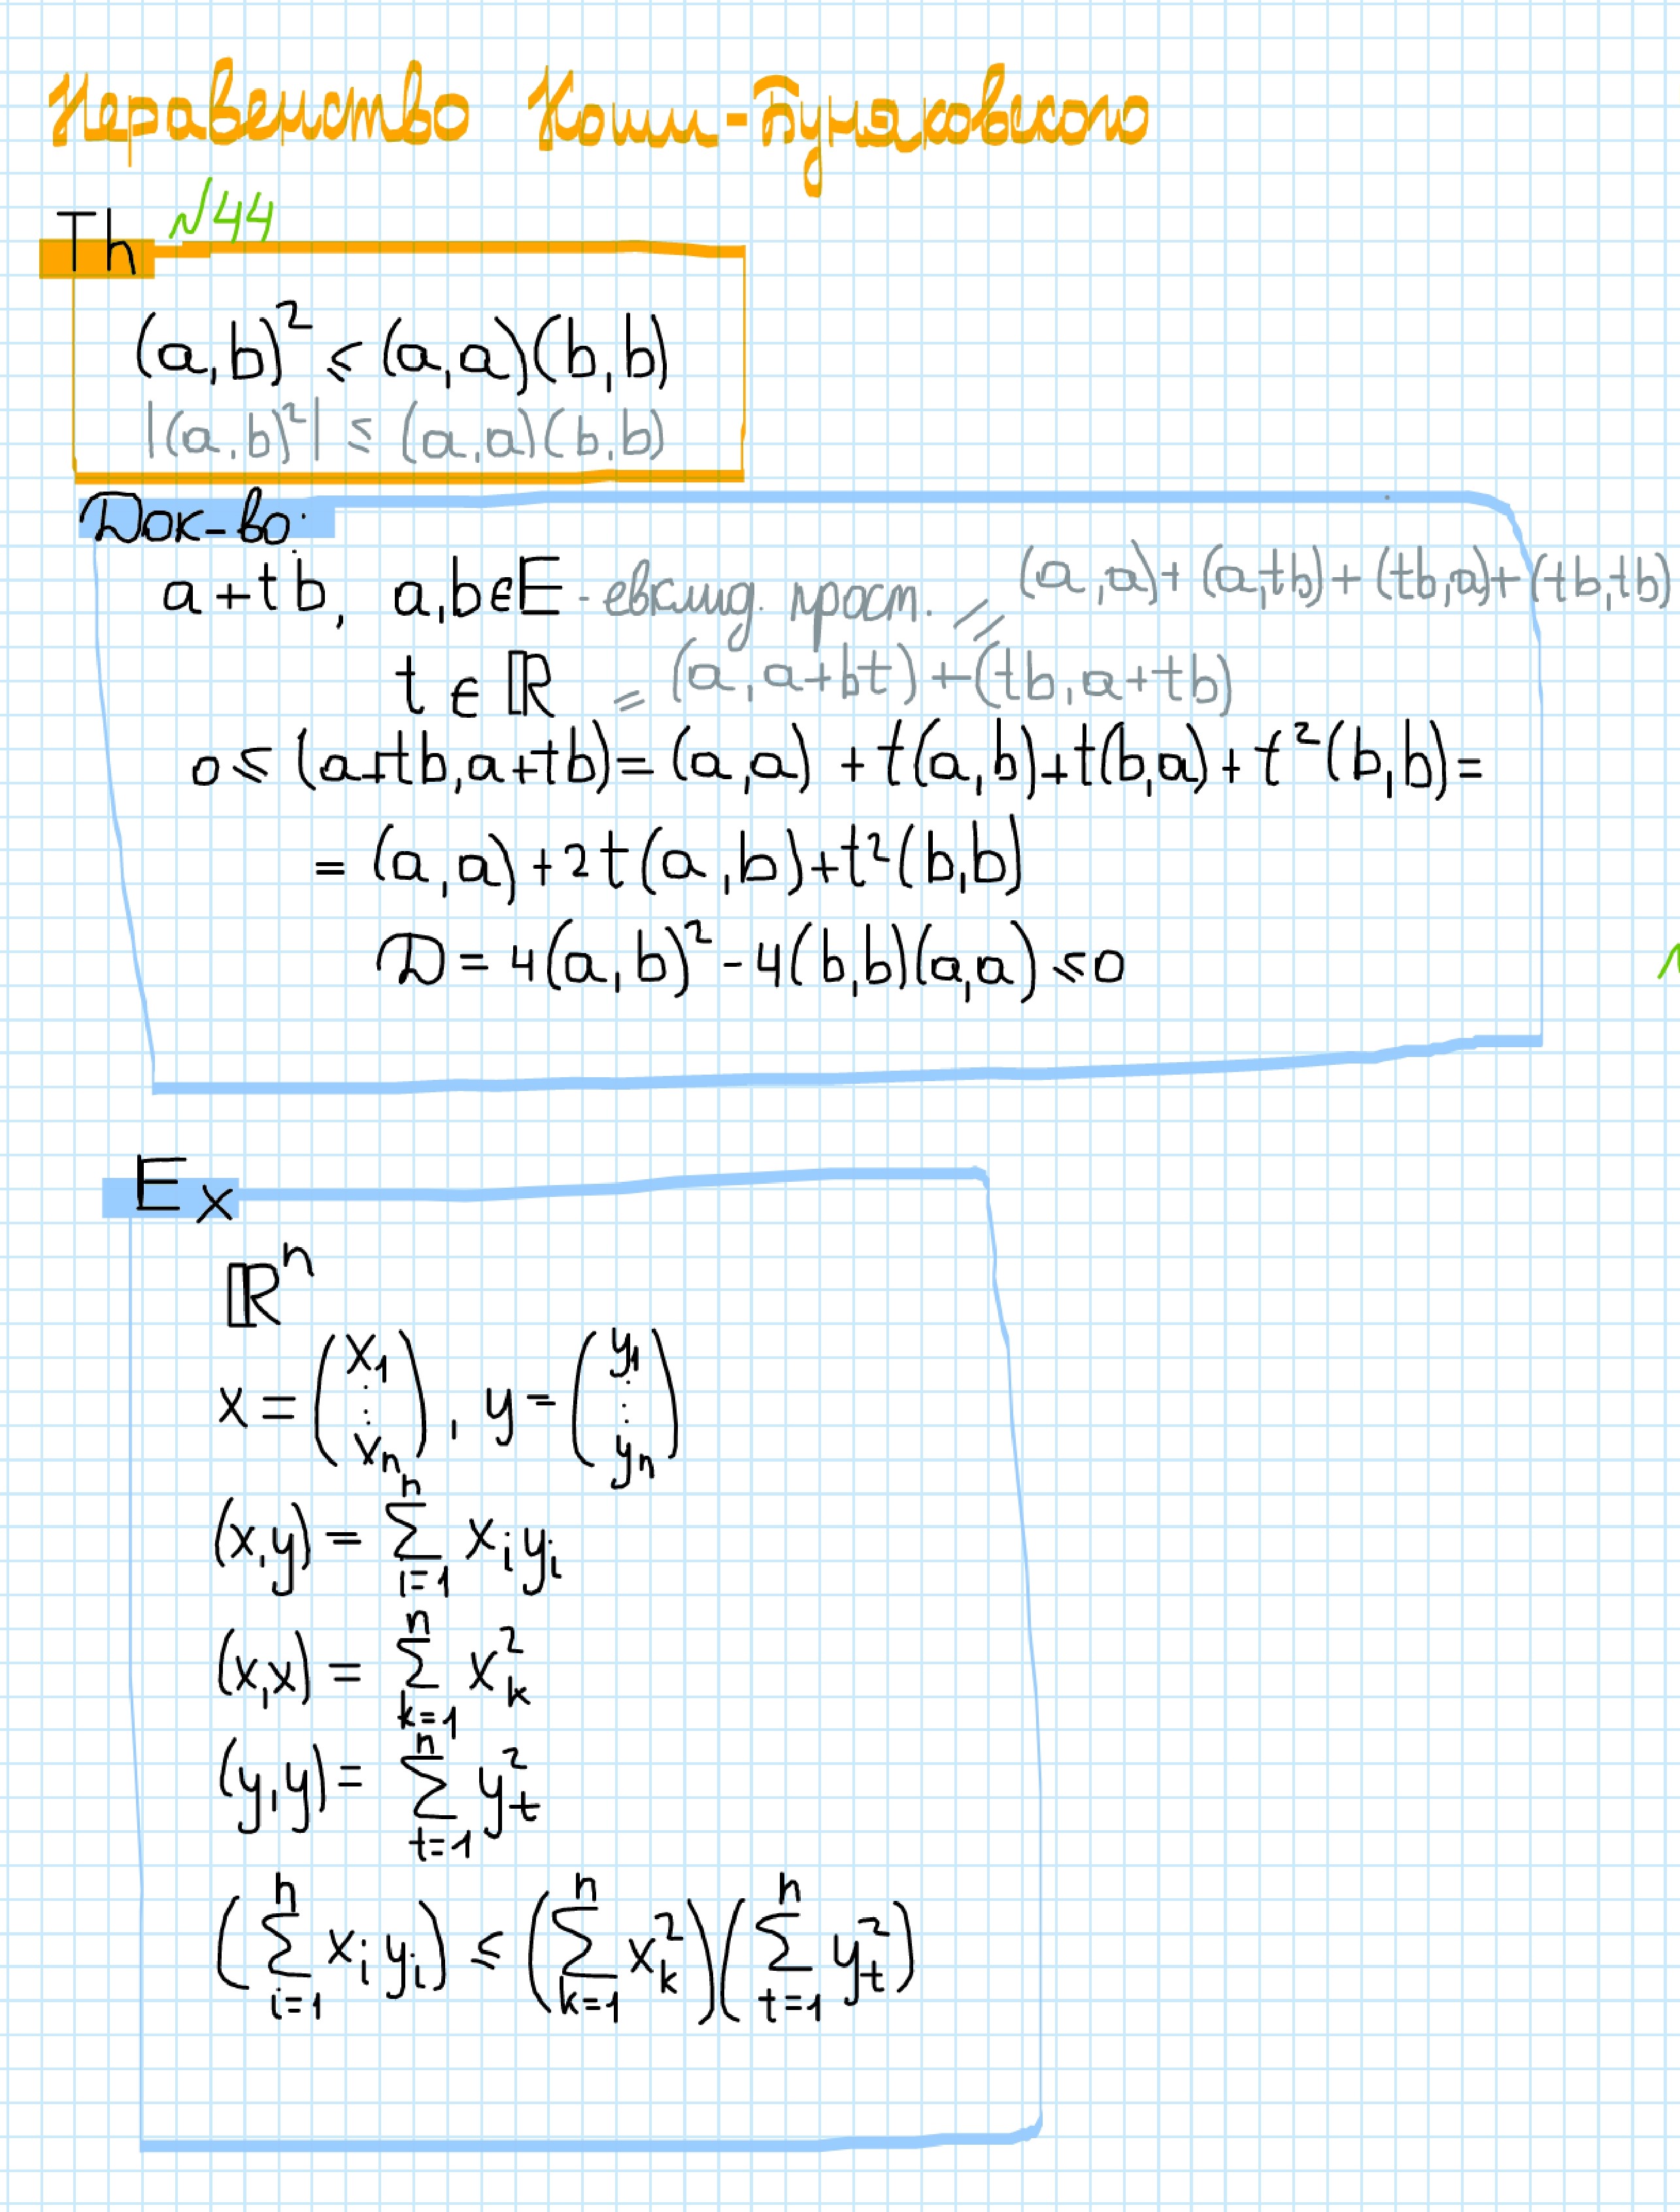 Неравенство Коши-Буняковского
Th √44
(a,b)² ≤ (a,a)(b,b)
|(a,b)²| ≤ (a,a)(b,b)
Док-во:
a+tb, a,b∈E - евклид. прост. // (a,a)+(a,tb)+(tb,a)+(tb,tb)
t∈ℝ = (a,a+bt)+(tb,a+tb)
0≤(a+tb,a+tb)=(a,a)+t(a,b)+t(b,a)+t²(b,b)=
=(a,a)+2t(a,b)+t²(b,b)
D=4(a,b)²-4(b,b)(a,a)≤0
Ex
ℝⁿ
x=(x₁ ⋮ xₙ), y=(y₁ ⋮ yₙ)
(x,y) = ∑_{i=1}^{n} x_i y_i
(x,x) = ∑_{k=1}^{n} x_k²
(y,y) = ∑_{t=1}^{n} y_t²
(∑_{i=1}^{n} x_i y_i) ≤ (∑_{k=1}^{n} x_k²)(∑_{t=1}^{n} y_t²)